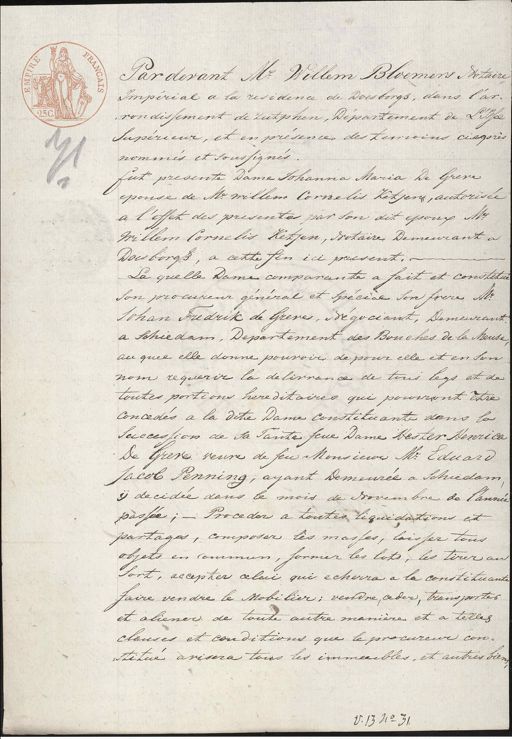 EMPIRE FRANÇAIS
25C
Par devant Mr. Willem Bloemers Notaire
Impérial a la residence de Doesborgh, dans l'ar-
rondissement de Zutphen, Departement de L'Issel
Supérieur, et en présence des temoins ciaprès
nommés et soussignés.
fut presente Dame Johanna Maria De Greve
epouse de Mr. Willem Cornelis Ketjen, autorisée
a l'effet des presentes par son dit epoux Mr.
Willem Cornelis Ketjen, Notaire Demeurant a
Doesborgh, a cette fin ici present,
La quelle Dame comparante a fait et constitué
son procureur général et spécial son frere Mr.
Johan Fredrik de Greve, Négociant, Demeurant
a Schiedam, Departement des Bouches de la Meuse,
au quel elle donne pouvoir de pour elle et en son
nom requerir la delivrance de tous legs et de
toutes portions hereditaires qui pourront être
concedés a la dite Dame constituante dans la
Succession de sa Tante feue Dame Hester Henrica
De Greve veuve de feu Monsieur Mr. Eduard
Jacob Penning, ayant Demeurée a Schiedam,
y decidée dans le mois de Novembre de l'année
passée; — Proceder a toutes liquidations et
partages, composer les masses, laisser tous
objets en commun, former les lots, les tirer au
sort, accepter celui qui echerra a la constituante
faire vendre le Mobilier; vendre, ceder, transporter
et aliener de toute autre manière et a telles
clauses et conditions que le procureur con-
stitué avisera tous les immeubles, et autres biens,
V. 13 No 31.